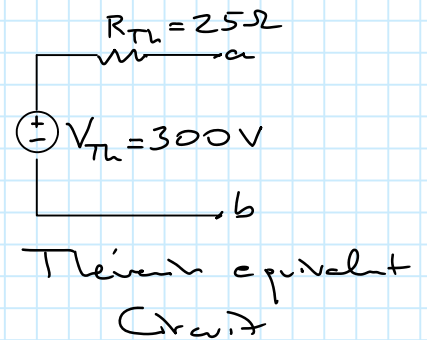 R_Th = 25Ω
a
V_Th = 300V
b
Thévenin equivalent
Circuit